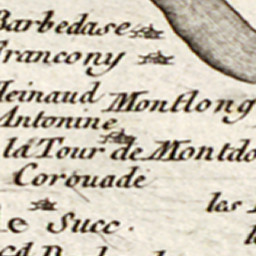 Barbedase
Francony
Meinaud Montlong
Antonine
la Tour de Montdo
Corouade
les
e Succ.